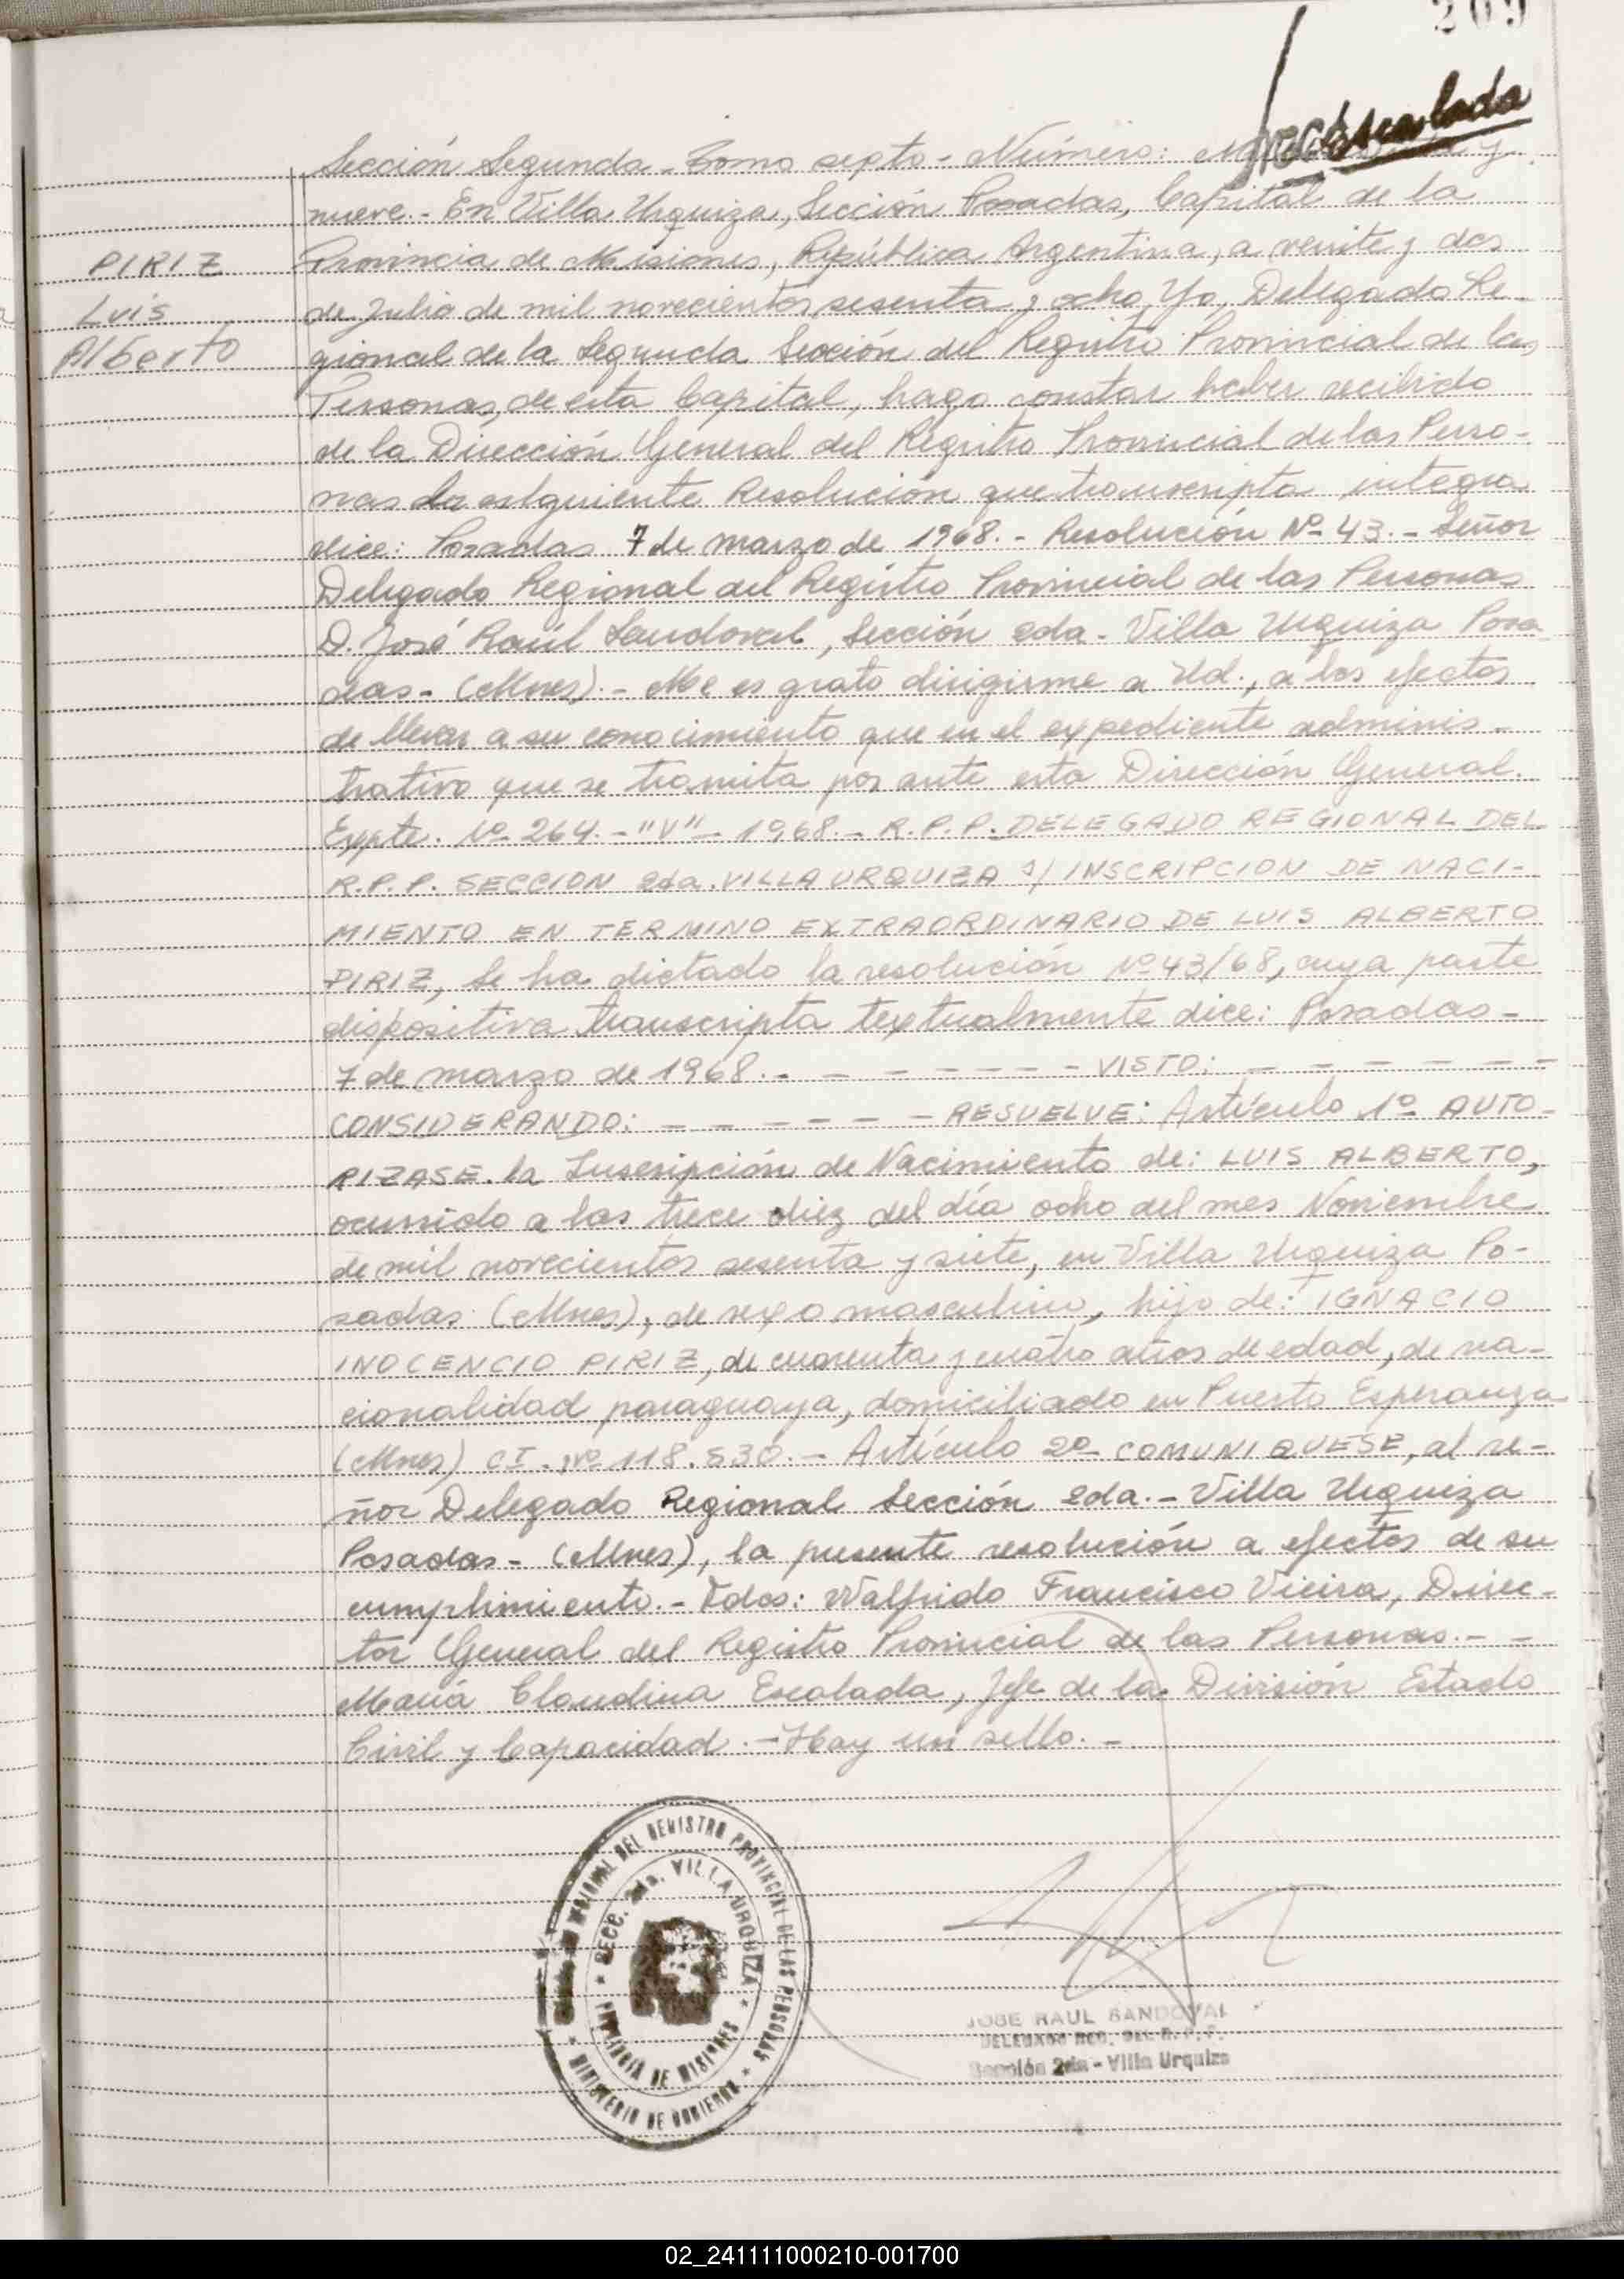 209
Escalada
Sección Segunda - Tomo sexto - Número: y
nueve.- En Villa Urquiza, Sección Posadas, Capital de la
PIRIZ
Provincia de Misiones, República Argentina, a veinte y dos
Luis
de Julio de mil novecientos sesenta y ocho, Yo, Delegado Re-
Alberto
gional de la Segunda Sección del Registro Provincial de las
Personas, de esta Capital, hago constar haber recibido
de la Dirección General del Registro Provincial de las Perso-
nas la siguiente Resolución que transcripta integra
dice: Posadas 7 de marzo de 1968.- Resolución Nº 43.- Señor
Delegado Regional del Registro Provincial de las Personas
D. José Raúl Sandoval, Sección 2da- Villa Urquiza Posa-
das- (Mnes).- Me es grato dirigirme a Ud., a los efectos
de llevar a su conocimiento que en el expediente adminis-
trativo que se tramita por ante esta Dirección General.
Expte. Nº 264.-"V"- 1968.- R.P.P. DELEGADO REGIONAL DEL
R.P.P. SECCION 2da. VILLA URQUIZA s/ INSCRIPCION DE NACI-
MIENTO EN TERMINO EXTRAORDINARIO DE LUIS ALBERTO
PIRIZ, Se ha dictado la resolución Nº 43/68, cuya parte
dispositiva transcripta textualmente dice: Posadas-
7 de marzo de 1968.- - - - - - - - VISTO: - - - - - - -
CONSIDERANDO: - - - - - - RESUELVE: Artículo 1º AUTO-
RIZASE. la Inscripción de Nacimiento de: LUIS ALBERTO,
ocurrido a las trece diez del día ocho del mes Noviembre
de mil novecientos sesenta y siete, en Villa Urquiza Po-
sadas (Mnes), de sexo masculino, hijo de: IGNACIO
INOCENCIO PIRIZ, de cuarenta y cuatro años de edad, de na-
cionalidad paraguaya, domiciliado en Puerto Esperanza
(Mnes) CI. Nº 118.530.- Artículo 2º COMUNIQUESE, al se-
ñor Delegado Regional Sección 2da.- Villa Urquiza
Posadas- (Mnes), la presente resolución a efectos de su
cumplimiento.- Fdos: Walfrido Francisco Vieira, Direc-
tor General del Registro Provincial de las Personas.- -
María Claudina Escalada, Jefe de la División Estado
Civil y Capacidad.- Hay un sello.-
REGIONAL DEL REGISTRO PROVINCIAL DE LAS PERSONAS
SECC. 2da. VILLA URQUIZA
PROVINCIA DE MISIONES
MINISTERIO DE GOBIERNO
JOSE RAUL SANDOVAL
DELEGADO REG. DEL R.P.P.
Sección 2da - Villa Urquiza
02_241111000210-001700